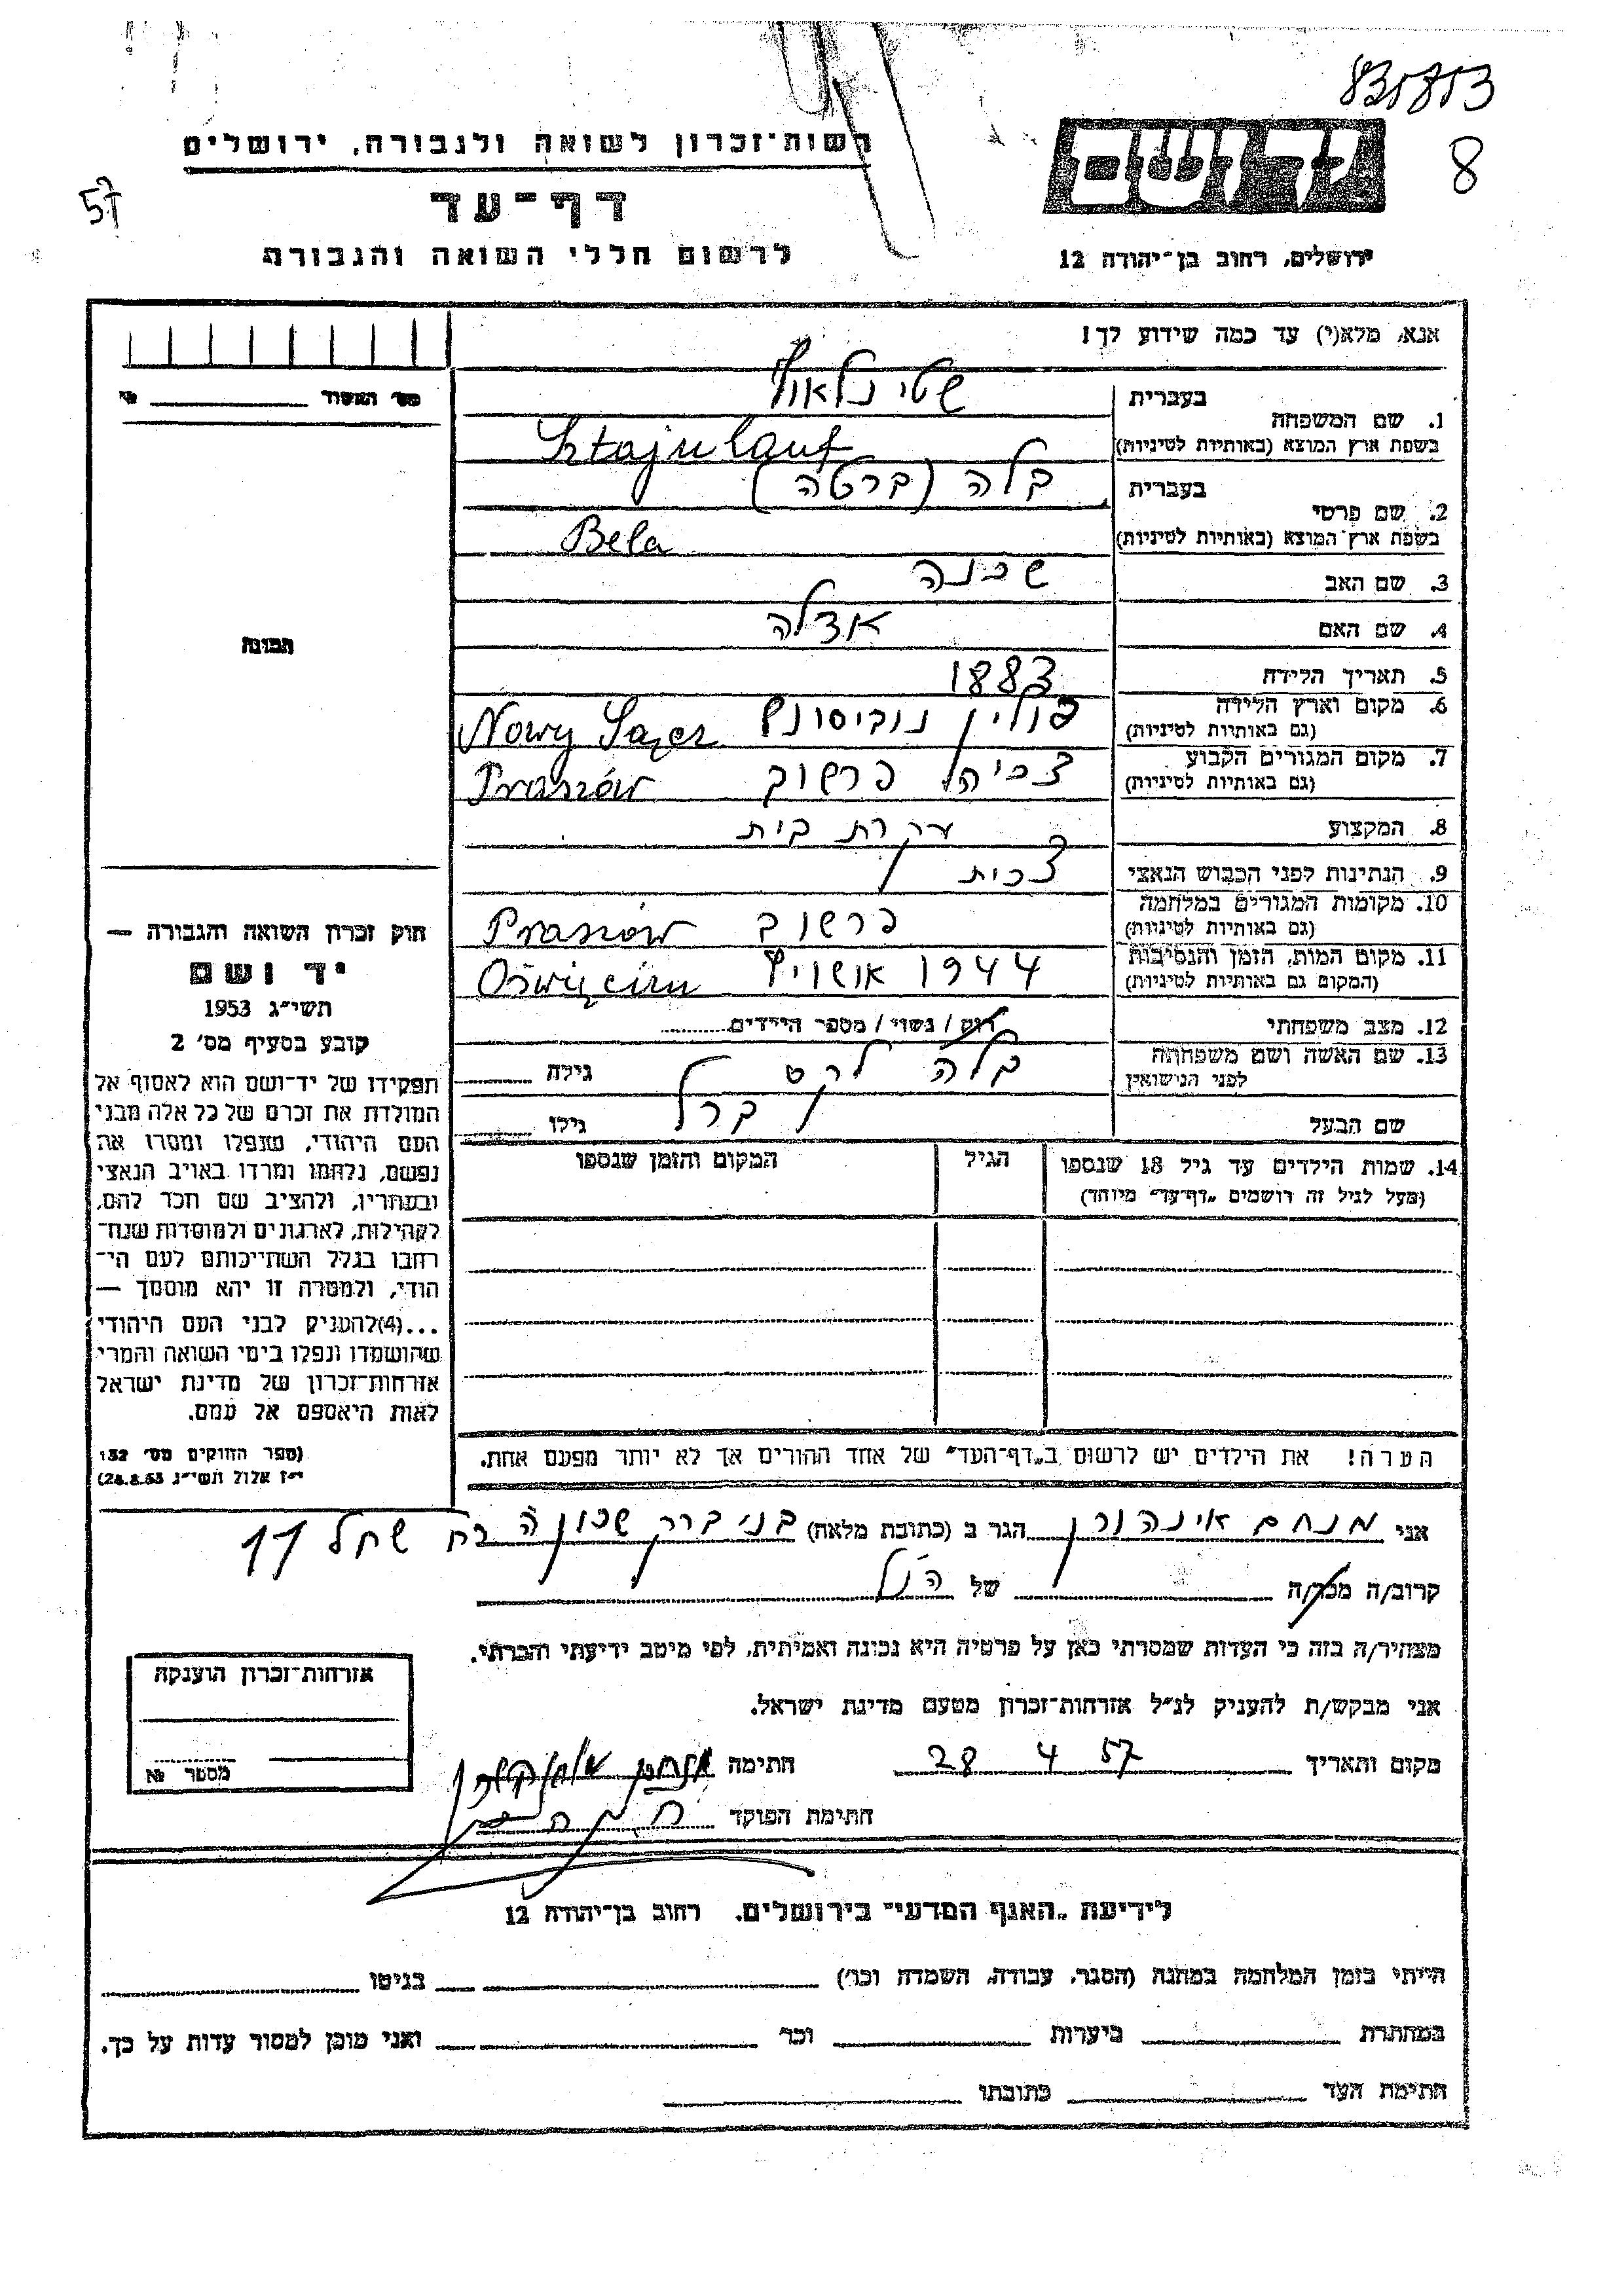 835853
8
57
יד ושם
רשות־זכרון לשואה ולגבורה, ירושלים
דף־עד
לרשום חללי השואה והגבורה
ירושלים, רחוב בן־יהודה 12
אנא, מלא(י) עד כמה שידוע לך!
מס' האשור № 
1. שם המשפחה
בעברית שטינלאוף
בשפת ארץ המוצא (באותיות לטיניות) Sztajnlauf
2. שם פרטי
בעברית בלה (ברטה)
בשפת ארץ המוצא (באותיות לטיניות) Bela
3. שם האב שכנה
4. שם האם אדלה
5. תאריך הלידה 1883
6. מקום וארץ הלידה פולין נוביסונץ Nowy Sącz
(גם באותיות לטיניות)
7. מקום המגורים הקבוע צכיה פרשוב Praszów
(גם באותיות לטיניות)
8. המקצוע עקרת בית
9. הנתינות לפני הכבוש הנאצי צכית
10. מקומות המגורים במלחמה פרשוב Praszów
(גם באותיות לטיניות)
11. מקום המות, הזמן והנסיבות 1944 אושויץ Oświęcim
(המקום גם באותיות לטיניות)
12. מצב משפחתי רווק / נשוי / מספר הילדים
13. שם האשה ושם משפחתה בלה גילה
לפני הנישואין
שם הבעל ברל גילו
14. שמות הילדים עד גיל 18 שנספו הגיל המקום והזמן שנספו
(מעל לגיל זה רושמים „דף־עד״ מיוחד)
הערה! את הילדים יש לרשום ב„דף־העד״ של אחד ההורים אך לא יותר מפעם אחת.
תמונה
חוק זכרון השואה והגבורה —
יד ושם
תשי״ג 1953
קובע בסעיף מס' 2
תפקידו של יד־ושם הוא לאסוף אל
המולדת את זכרם של כל אלה מבני
העם היהודי, שנפלו ומסרו את
נפשם, נלחמו ומרדו באויב הנאצי
ובעוזריו, ולהציב שם וזכר להם,
לקהילות, לארגונים ולמוסדות שנח־
רבו בגלל השתייכותם לעם הי־
הודי, ולמטרה זו יהא מוסמך —
...(4)להעניק לבני העם היהודי
שהושמדו ונפלו בימי השואה והמרי
אזרחות־זכרון של מדינת ישראל
לאות היאספם אל עמם.
(ספר החוקים מס' 132
י״ז אלול תשי״ג 28.8.53)
אני מנחם אינהורן הגר ב (כתובת מלאה) בני ברק שכון ה רח שחל 11
קרוב/ה מכר/ה של הנ"ל
מצהיר/ה בזה כי העדות שמסרתי כאן על פרטיה היא נכונה ואמיתית, לפי מיטב ידיעתי והכרתי.
אני מבקש/ת להעניק לנ״ל אזרחות־זכרון מטעם מדינת ישראל.
אזרחות־זכרון הוענקה
מספר №
מקום ותאריך 28 4 57 חתימה
חתימת הפוקד
לידיעת „האגף המדעי״ בירושלים. רחוב בן־יהודה 12
הייתי בזמן המלחמה במחנה (הסגר, עבודה, השמדה וכו') בגיטו
במחתרת ביערות וכו' ואני מוכן למסור עדות על כך.
חתימת העד כתובתו